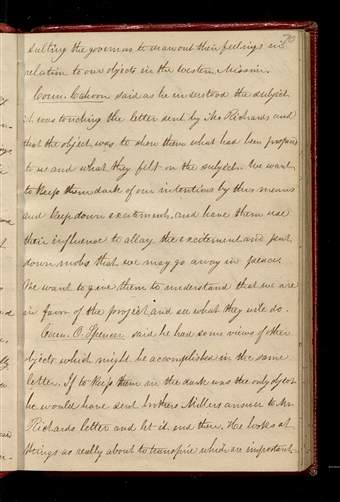 70
sulting the governors to draw out their feelings in
relation to our objects in the Western Mission.
Coun. Cahoon said as he understood the subject
it was touching the letter sent by Mr Richards and
that the object was to show them what had been proposed
to us and what they felt on the subject. We want
to keep them dark of our intentions by this means
and keep down excitement, and have them use
their influence to allay the excitement and put
down mobs that we may go away in peace.
We want to give them to understand that we are
in favor of the project and see what they will do.
Coun. O. Spencer said he had some views of other
objects which might be accomplished in the same
letter. If to keep them in the dark was the only object
he would have send brothers Millers answer to Mr
Richards letter and let it end there. He looks at
things as really about to transpire which are important